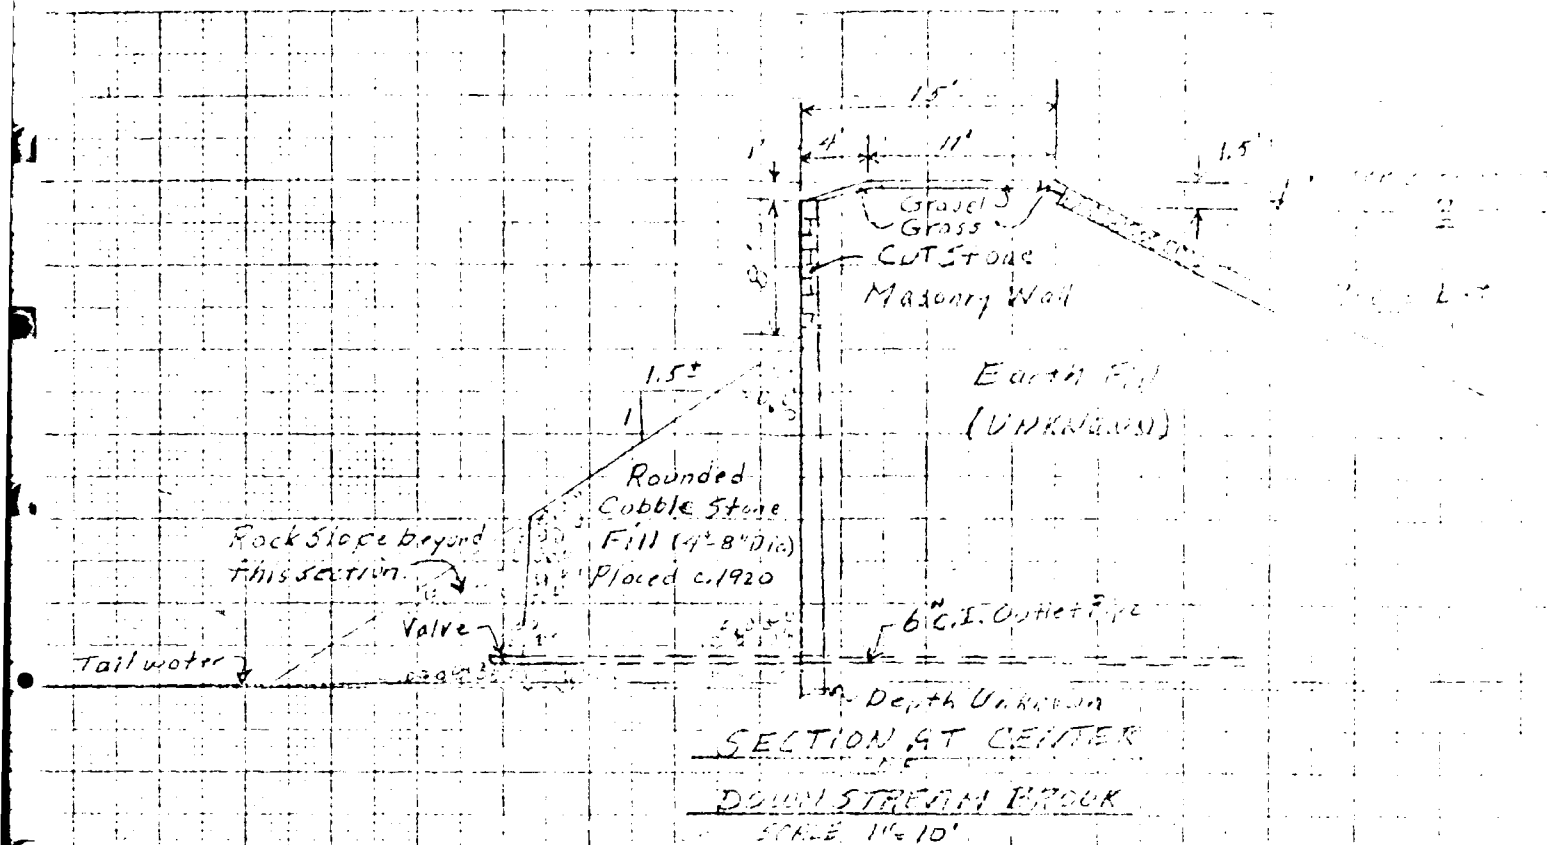 15'
1' 4' 11' 1.5'
Gravel
Grass
8'
CUT Stone
Masonry Wall
Earth Fill
(UNKNOWN)
1.5±
1
Rounded
Cobble Stone
Fill (4"-8" Dia)
Placed c.1920
Rock Slope beyond
this section
Valve
6" C.I. Outlet Pipe
Tailwater
Depth Unknown
SECTION AT CENTER
OF
DOWNSTREAM BROOK
SCALE 1"=10'